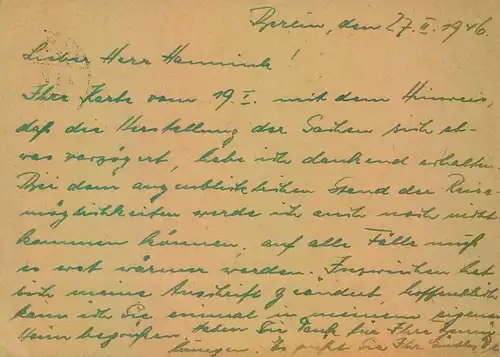 Berlin, den 27. II. 1946.
Lieber Herr Hannink!
Ihre Karte vom 19. I. mit dem Hinweis,
daß die Herstellung der Sachen sich et-
was verzögert, habe ich dankend erhalten.
Bei dem augenblicklichen Stand der Reise
möglichkeiten werde ich auch noch nicht
kommen können, auf alle Fälle muß
es erst wärmer werden. Inzwischen hat
sich meine Anschrift geändert, hoffentlich
kann ich Sie einmal in meinem eigenen
Heim begrüßen. Haben Sie Dank für Ihre
Es grüßt Sie Ihr